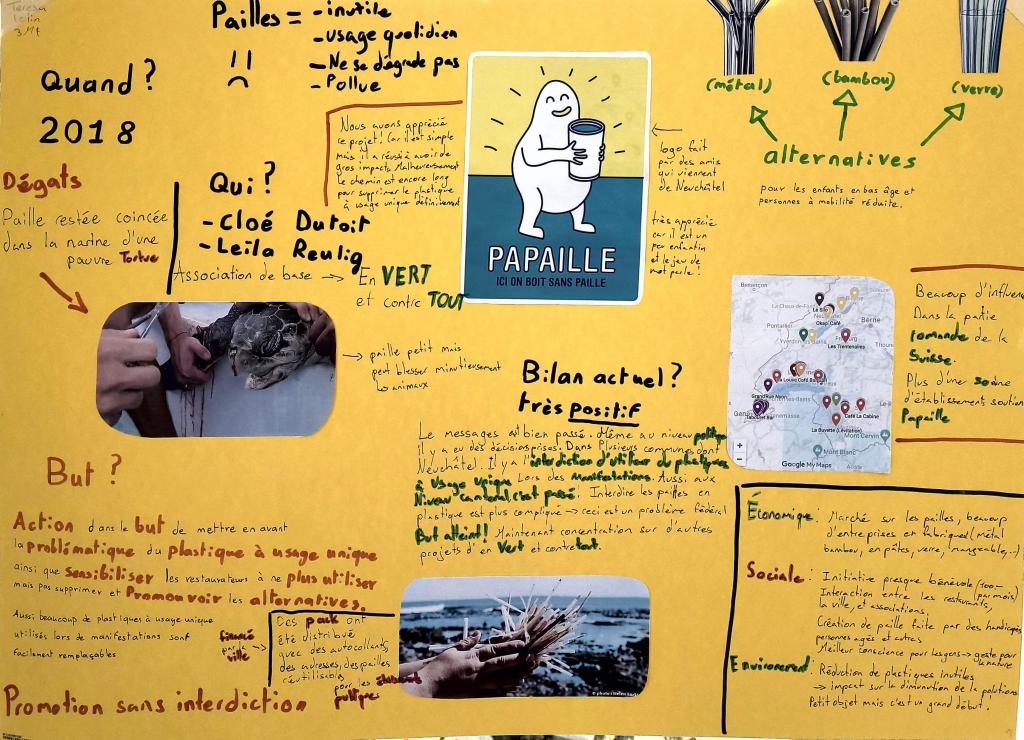 Teresa
3M4
Pailles = - inutile
- usage quotidien
- Ne se dégrade pas
- Pollue
Quand ?
2018
Dégats
Paille restée coincée
dans la narine d'une
pauvre Tortue
Qui ?
- Cloé Dutoit
- Leila Reulig
Association de base → En VERT
et contre TOUT
Nous avons apprécié
ce projet ! Car il est simple
mais il a réussi à avoir de
gros impacts. Malheureusement
le chemin est encore long
pour supprimer le plastique
à usage unique définitivement
PAPAILLE
ICI ON BOIT SANS PAILLE
logo fait
par des amis
qui viennent
de Neuchâtel
très apprécié
car il est un
peu enfantin
et le jeu de
mot parle !
(métal)
(bambou)
(verre)
alternatives
pour les enfants en bas âge et
personnes à mobilité réduite.
→ paille petit mais
peut blesser minutieusement
les animaux
Bilan actuel ?
très positif
Le messages est bien passé. Même au niveau politique
Il y a eu des décisions prises. Dans Plusieurs communes dont
Neuchâtel. Il y a l'interdiction d'utiliser du plastiques
à usage unique Lors des Manifestations. Aussi, aux
Niveau cantonal, c'est passé ! Interdire les pailles en
plastique est plus compliqué → ceci est un problème fédéral
But atteint ! Maintenant concentration sur d'autres
projets d'en Vert et contre tout.
Besançon
La Chaux-de-Fonds
Le Silo
Neuchâtel
Okapi Café
Berne
Pontarlier
Yverdon-les-Bains
Fribourg
Thoune
Les Trentenaires
La Louve Café
GrandRue Nyon
Genève
Annemasse
Café La Cabine
La Buvette (Lévitation)
Mont Cervin
Mont Blanc
Aoste
Google My Maps
Beaucoup d'influence
Dans la partie
romande de la
Suisse.
Plus d'une
d'établissements
Papaille
But ?
Action dans le but de mettre en avant
la problématique du plastique à usage unique
ainsi que sensibiliser les restaurateurs à ne plus utiliser
mais pas supprimer et Promouvoir les alternatives.
Aussi beaucoup de plastiques à usage unique
utilisés lors de manifestations sont
facilement remplaçables
financé
par la
ville →
Des pack ont
été distribué
avec des autocollants,
des adresses, des pailles
réutilisables
pour les
Promotion sans interdiction
Économique : Marché sur les pailles, beaucoup
d'entreprises en fabriquent (métal
bambou, en pâtes, verre, mangeable,..)
Sociale : Initiative presque bénévole (100.- par mois)
Interaction entre les restaurants,
la ville, et associations.
Création de paille faite par des handicapés
personnes agés et autres
Meilleur conscience pour les gens → geste pour
la nature
Environement : Réduction de plastiques inutiles
→ impact sur la diminution de la polutions
Petit objet mais c'est un grand début.